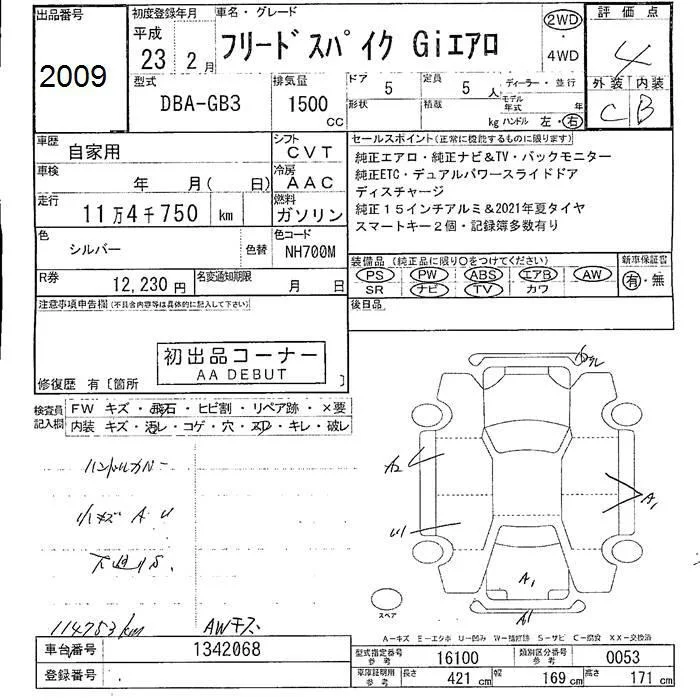 出品番号
2009
初度登録年月
平成
23 2 月
車名・グレード
フリードスパイク Giエアロ
2WD
・
4WD
評価点
4
外装 内装
C B
型式
DBA-GB3
排気量
1500
CC
ドア 5
形状
定員 5 人
積載 kg
ディーラー・並行
モデル年式 年
ハンドル 左・右
車歴
自家用
シフト
CVT
車検
年 月( 日)
冷房
AAC
走行
11万4千750 km
燃料
ガソリン
色
シルバー
色替
色コード
NH700M
R券
12,230円
名変通知期限
月 日
セールスポイント(正常に機能するものに限ります)
純正エアロ・純正ナビ&TV・バックモニター
純正ETC・デュアルパワースライドドア
ディスチャージ
純正15インチアルミ&2021年夏タイヤ
スマートキー2個・記録簿多数有り
装備品(純正品に限り○をつけてください)
PS PW ABS エアB AW
SR ナビ TV カワ
新車保証書
有・無
後日品
注意事項申告欄(不具合内容等は具体的に記入して下さい)
初出品コーナー
AA DEBUT
修復歴 有〔箇所 〕
検査員記入欄
FW キズ・飛石・ヒビ割・リペア跡・×要
内装 キズ・汚レ・コゲ・穴・スレ・キレ・破レ
ハンドルカバー
小キズ A U
下廻りS.
114753km
AWキズ
A2
U1
A1
A1
A1
スペア
A-キズ E-エクボ U-凹み W-補修跡 S-サビ C-腐食 XX-交換済
車台番号
1342068
登録番号
型式指定番号
参考
16100
類別区分番号
参考
0053
車庫証明用
参考
長さ 421 cm
幅 169 cm
高さ 171 cm